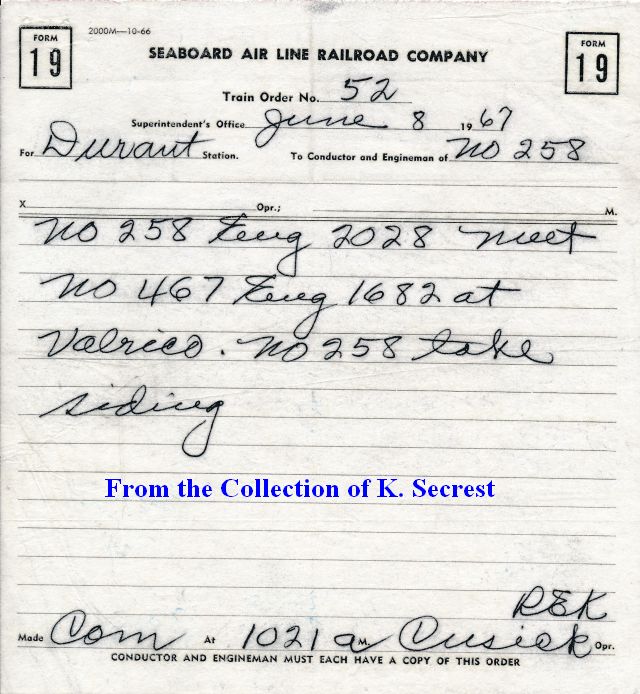 FORM 19
2000M—10-66
SEABOARD AIR LINE RAILROAD COMPANY
FORM 19
Train Order No. 52
Superintendent's Office June 8 1967
For Durant Station. To Conductor and Engineman of No 258
X Opr.; M.
No 258 Eng 2028 meet
No 467 Eng 1682 at
Valrico. No 258 take
siding
From the Collection of K. Secrest
REK
Made Com At 1021 a M. Cusick Opr.
CONDUCTOR AND ENGINEMAN MUST EACH HAVE A COPY OF THIS ORDER